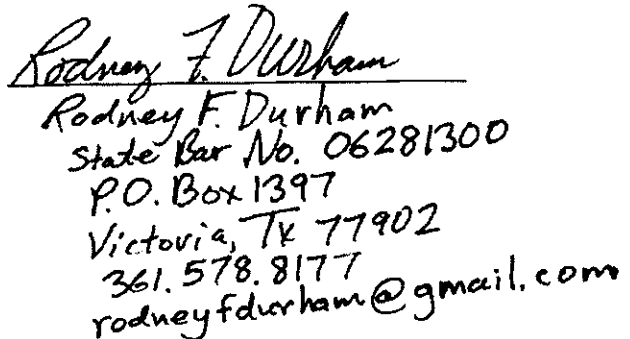 Rodney F. Durham
Rodney F. Durham
State Bar No. 06281300
P.O. Box 1397
Victoria, Tx 77902
361.578.8177
rodneyfdurham@gmail.com